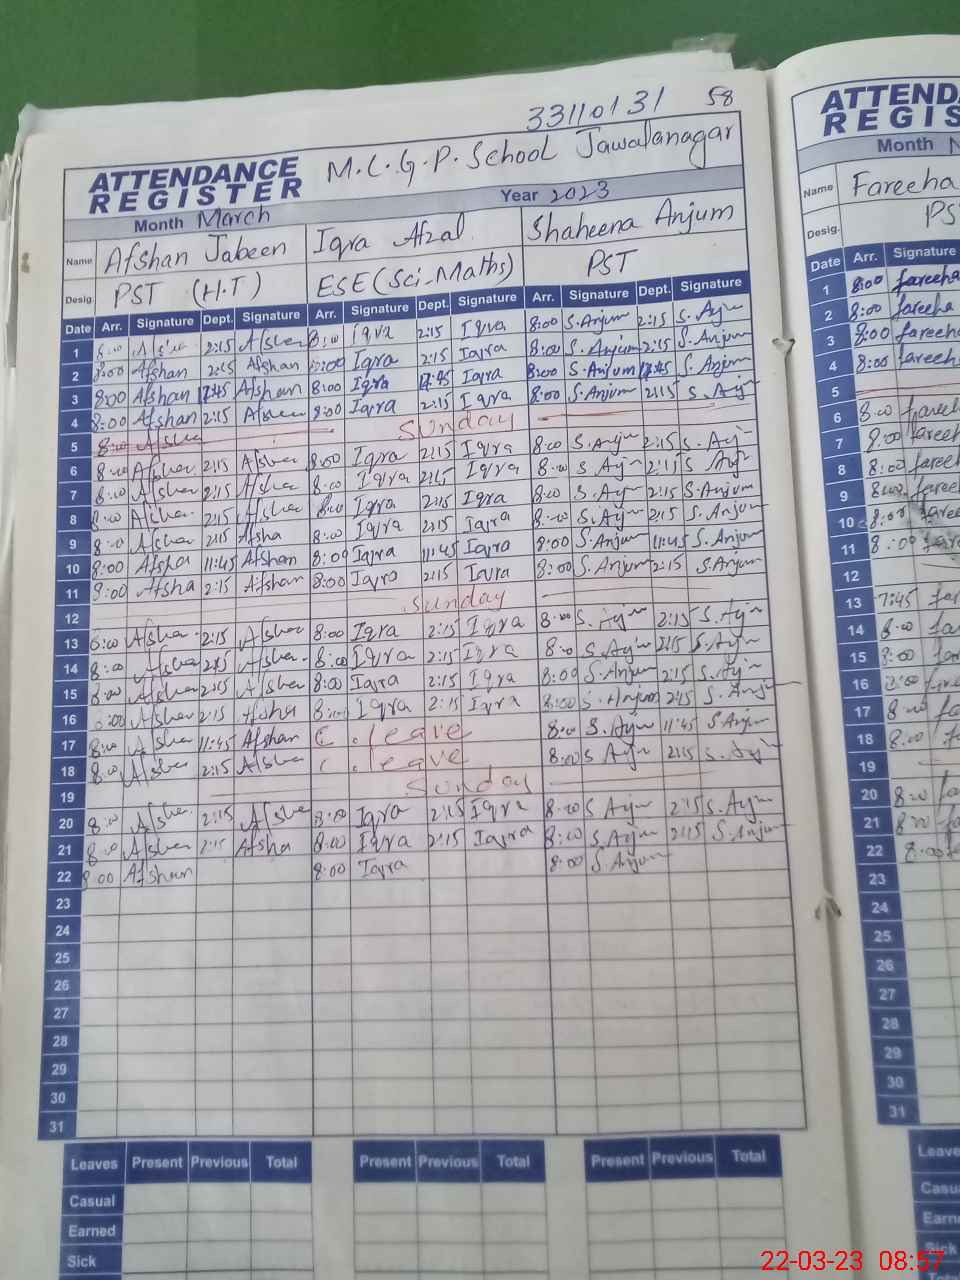 33110131 58
ATTENDANCE REGISTER M.C.G.P. School Jawalanagar
Month March Year 2023
Name Afshan Jabeen Iqra Afzal Shaheena Anjum
Desig. PST (H.T) ESE (Sci-Maths) PST
Date Arr. Signature Dept. Signature Arr. Signature Dept. Signature Arr. Signature Dept. Signature
1 8:00 2:15 Afshan 8:00 Iqra 2:15 Iqra 8:00 S.Anjum 2:15 S.Ajm
2 8:00 Afshan 2:15 Afshan 8:00 Iqra 2:15 Iqra 8:00 S.Anjum 2:15 S.Anjum
3 8:00 Afshan Afshan 8:00 Iqra Iqra 8:00 S.Anjum S.Anjum
4 8:00 Afshan 2:15 Afshan 8:00 Iqra 2:15 Iqra 8:00 S.Anjum 2:15 S.Anjum
5 8:00 Afshan Sunday
6 8:00 Afshan 2:15 Afshan 8:00 Iqra 2:15 Iqra 8:00 S.Anjum 2:15 S.Ajm
7 8:00 Afshan 2:15 Afshan 8:00 Iqra 2:15 Iqra 8:00 S Ajm 2:15 S Ajm
8 8:00 Afshan 2:15 Afshan 8:00 Iqra 2:15 Iqra 8:00 S.Ajm 2:15 S.Anjum
9 8:00 Afshan 2:15 Afsha 8:00 Iqra 2:15 Iqra 8:00 S.Ajm 2:15 S.Anjum
10 8:00 Afsha 11:45 Afshan 8:00 Iqra 11:45 Iqra 8:00 S.Anjum 11:45 S.Anjum
11 8:00 Afsha 2:15 Afshan 8:00 Iqra 2:15 Iqra 8:00 S.Anjum 2:15 S.Anjum
12 Sunday
13 8:00 Afshan 2:15 Afshan 8:00 Iqra 2:15 Iqra 8:00 S.Ajm 2:15 S.Ajm
14 8:00 Afshan 2:15 Afshan 8:00 Iqra 2:15 Iqra 8:00 S.Ajm 2:15 S.Ajm
15 8:00 Afshan 2:15 Afshan 8:00 Iqra 2:15 Iqra 8:00 S.Anjum 2:15 S.Ajm
16 8:00 Afshan 2:15 Afsha 8:00 Iqra 2:15 Iqra 8:00 S.Anjum 2:15 S.Anjum
17 8:00 Afshan 11:45 Afshan C. leave 8:00 S.Ajm 11:45 S Anjum
18 8:00 Afshan 2:15 Afshan C. leave 8:00 S Ajm 2:15 S.Ajm
19 Sunday
20 8:00 Afshan 2:15 Afshan 8:00 Iqra 2:15 Iqra 8:00 S Ajm 2:15 S.Ajm
21 8:00 Afshan 2:15 Afsha 8:00 Iqra 2:15 Iqra 8:00 S.Ajm 2:15 S.Anjum
22 8:00 Afshan 8:00 Iqra 8:00 S.Anjum
23
24
25
26
27
28
29
30
31
Leaves Present Previous Total Present Previous Total Present Previous Total
Casual
Earned
Sick
REGIS
Month
Name Fareeha
Desig. PST
Date Arr. Signature
1 8:00 fareeha
2 8:00 fareeha
3 8:00 fareeh
4 8:00 fareeh
5
6 8:00 fareeh
7 8:00 fareeh
8 8:00 fareeh
9 8:00 fareeh
10 8:00 faree
11 8:00 faree
12
13 7:45 far
14 8:00 far
15 8:00 far
16 8:00 far
17 8:00 far
18 8:00 far
19
20 8:00 fa
21 8:00 fa
22 8:00 fa
23
24
25
26
27
28
29
30
31
22-03-23 08:57